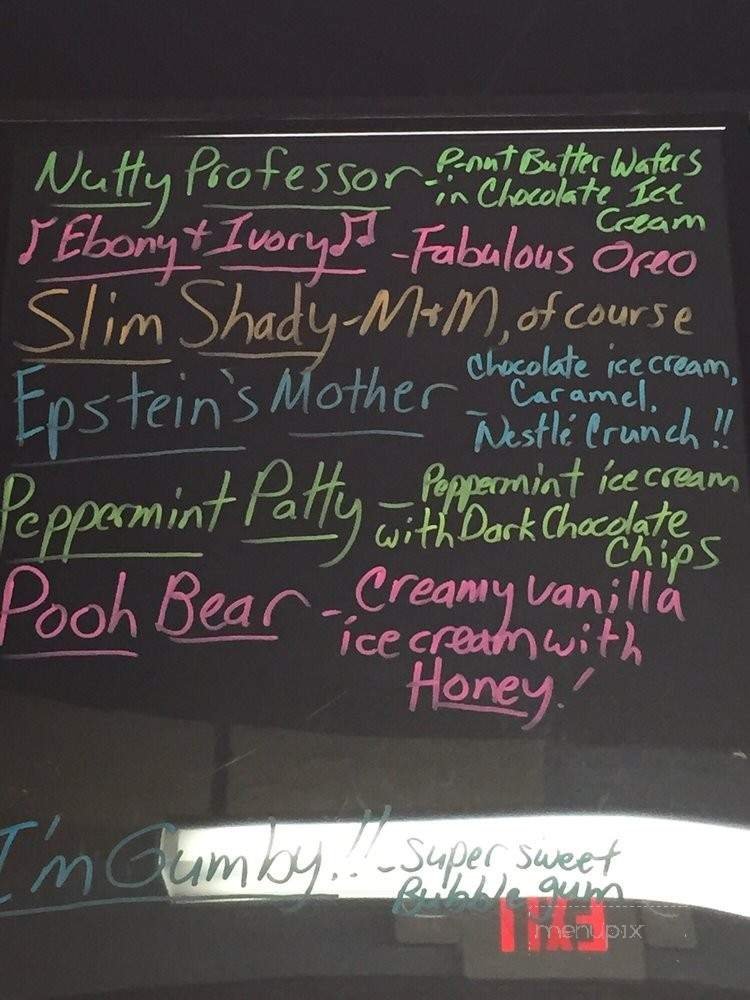 Nutty Professor - Penut Butter Wafers
in Chocolate Ice
Cream
♪Ebony + Ivory♫ - Fabulous Oreo
Slim Shady - M+M, of course
Epstein's Mother - Chocolate ice cream,
Caramel,
Nestlé Crunch!!
Peppermint Patty - Peppermint ice cream
with Dark Chocolate
Chips
Pooh Bear - Creamy vanilla
ice cream with
Honey!
I'm Gumby!! - Super sweet
Bubble gum
EXIT
menupix